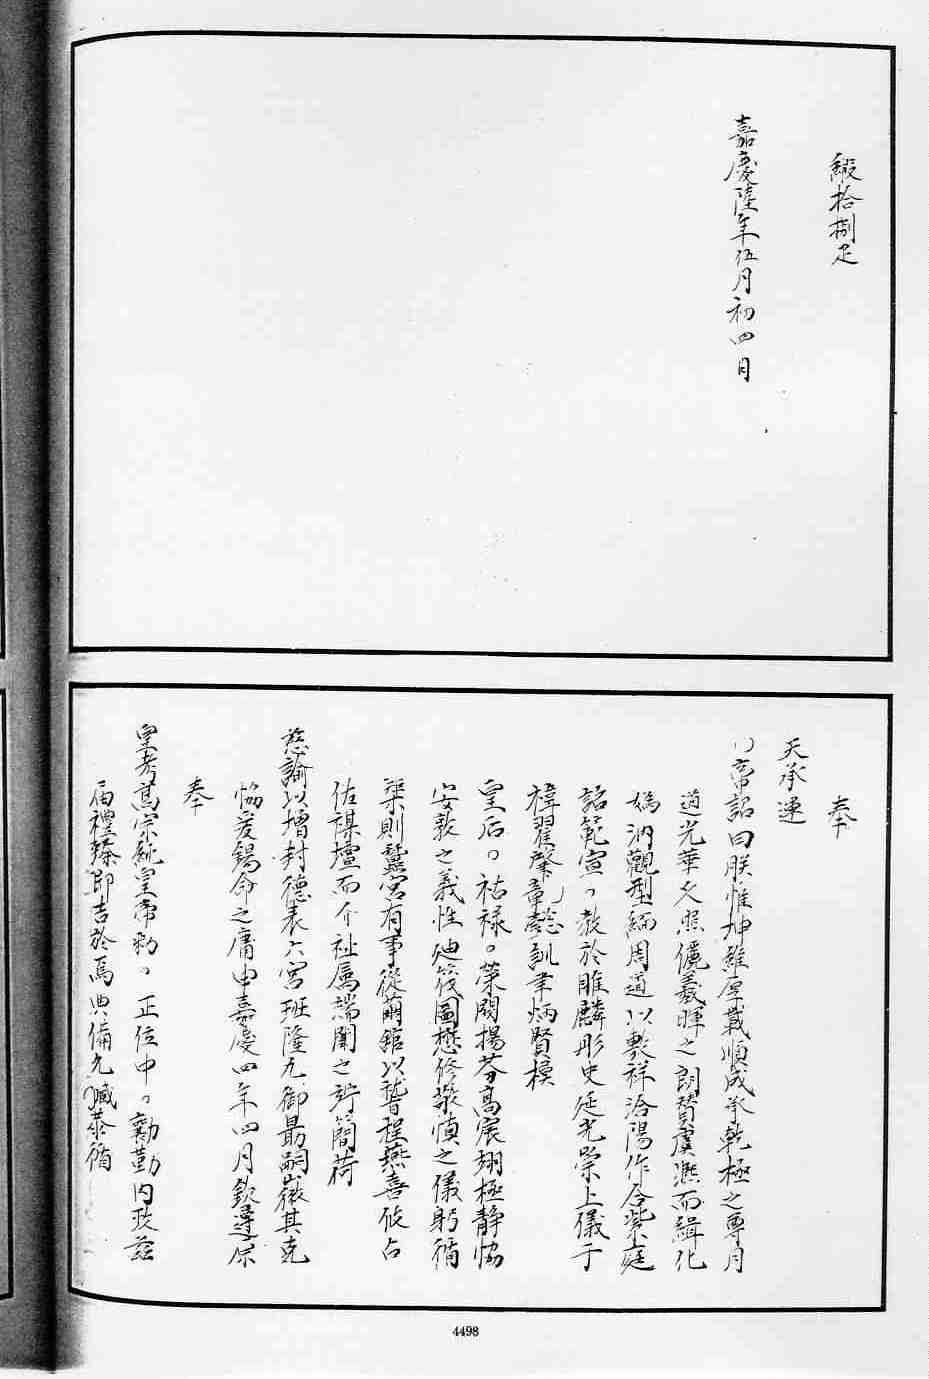 緞拾捌疋
嘉慶陸年伍月初四日
奉
天承運
帝詔曰朕惟坤維厚載順成承乾極之尊月
道光華久照儷羲暉之朗贊虞㵐而緝化
媯汭觀型緬周道以敷祥洽陽作合紫庭
詒範宣。教於雎麟彤史延光榮上儀于
褘翟肇章懿訓聿炳賢模
皇后。祜祿。榮閥揚芬高宸翊極靜協
安敦之義性迪筏圖懋修敬慎之儀躬循
榘則蠶宮有事從繭館以誓程燕喜攸占
佐禖壇而介祉屬端闈之
簡荷
慈諭以增封德表六宮班隆九御最嗣嶽其克
協爰錫命之庸申嘉慶四年四月欽遵
奉
皇考高宗純皇帝勑。正位中。勷勤內政茲
屆禮臻即吉於焉典備允臧泰循
4498